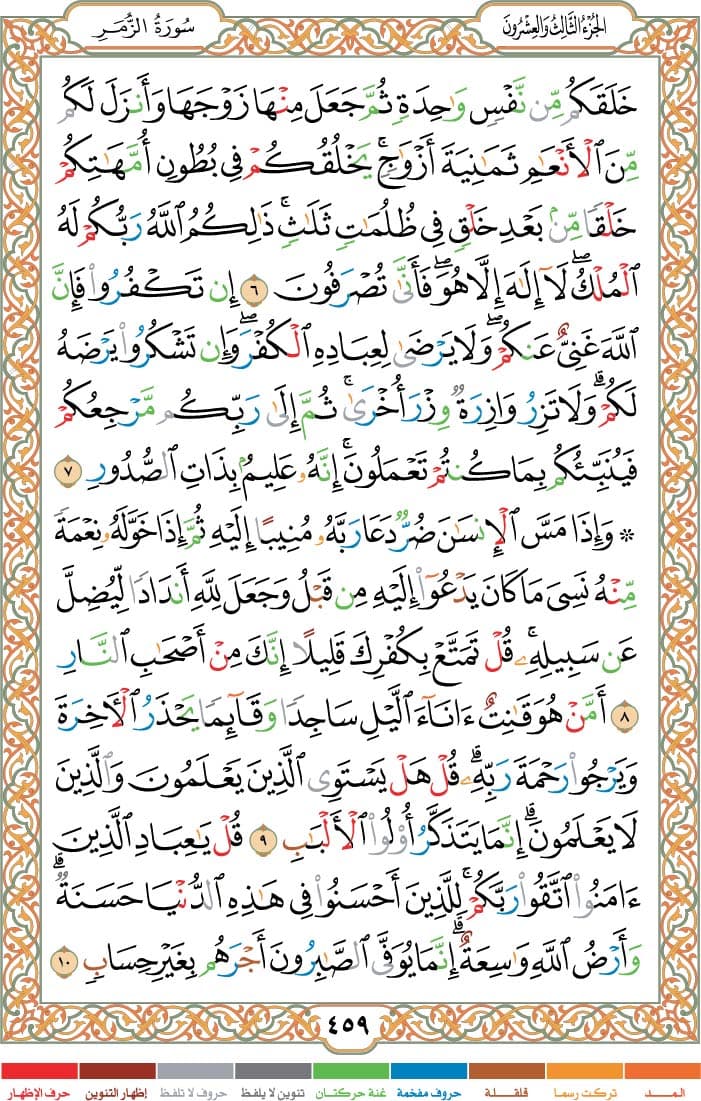 الجُزْءُ الثَّالِثُ وَالعِشْرُونَ
سُورَةُ الزُّمَرِ
خَلَقَكُم مِّن نَّفْسٍ وَٰحِدَةٍ ثُمَّ جَعَلَ مِنْهَا زَوْجَهَا وَأَنزَلَ لَكُم
مِّنَ ٱلْأَنْعَٰمِ ثَمَٰنِيَةَ أَزْوَٰجٍ ۚ يَخْلُقُكُمْ فِى بُطُونِ أُمَّهَٰتِكُمْ
خَلْقًا مِّنۢ بَعْدِ خَلْقٍ فِى ظُلُمَٰتٍ ثَلَٰثٍ ۚ ذَٰلِكُمُ ٱللَّهُ رَبُّكُمْ لَهُ
ٱلْمُلْكُ ۖ لَآ إِلَٰهَ إِلَّا هُوَ ۖ فَأَنَّىٰ تُصْرَفُونَ ٦ إِن تَكْفُرُوا۟ فَإِنَّ
ٱللَّهَ غَنِىٌّ عَنكُمْ ۖ وَلَا يَرْضَىٰ لِعِبَادِهِ ٱلْكُفْرَ ۖ وَإِن تَشْكُرُوا۟ يَرْضَهُ
لَكُمْ ۗ وَلَا تَزِرُ وَازِرَةٌ وِزْرَ أُخْرَىٰ ۚ ثُمَّ إِلَىٰ رَبِّكُم مَّرْجِعُكُمْ
فَيُنَبِّئُكُم بِمَا كُنتُمْ تَعْمَلُونَ ۚ إِنَّهُۥ عَلِيمٌۢ بِذَاتِ ٱلصُّدُورِ ٧
۞ وَإِذَا مَسَّ ٱلْإِنسَٰنَ ضُرٌّ دَعَا رَبَّهُۥ مُنِيبًا إِلَيْهِ ثُمَّ إِذَا خَوَّلَهُۥ نِعْمَةً
مِّنْهُ نَسِىَ مَا كَانَ يَدْعُوٓا۟ إِلَيْهِ مِن قَبْلُ وَجَعَلَ لِلَّهِ أَندَادًا لِّيُضِلَّ
عَن سَبِيلِهِۦ ۚ قُلْ تَمَتَّعْ بِكُفْرِكَ قَلِيلًا إِنَّكَ مِنْ أَصْحَٰبِ ٱلنَّارِ
٨ أَمَّنْ هُوَ قَٰنِتٌ ءَانَآءَ ٱلَّيْلِ سَاجِدًا وَقَآئِمًا يَحْذَرُ ٱلْءَاخِرَةَ
وَيَرْجُوا۟ رَحْمَةَ رَبِّهِۦ ۗ قُلْ هَلْ يَسْتَوِى ٱلَّذِينَ يَعْلَمُونَ وَٱلَّذِينَ
لَا يَعْلَمُونَ ۗ إِنَّمَا يَتَذَكَّرُ أُو۟لُوا۟ ٱلْأَلْبَٰبِ ٩ قُلْ يَٰعِبَادِ ٱلَّذِينَ
ءَامَنُوا۟ ٱتَّقُوا۟ رَبَّكُمْ ۚ لِلَّذِينَ أَحْسَنُوا۟ فِى هَٰذِهِ ٱلدُّنْيَا حَسَنَةٌ ۗ
وَأَرْضُ ٱللَّهِ وَٰسِعَةٌ ۗ إِنَّمَا يُوَفَّى ٱلصَّٰبِرُونَ أَجْرَهُم بِغَيْرِ حِسَابٍ ١٠
٤٥٩
المــد تركت رسما قلقلة حروف مفخمة غنة حركتان تنوين لا يلفظ حروف لا تلفظ إظهار التنوين حرف الإظهار